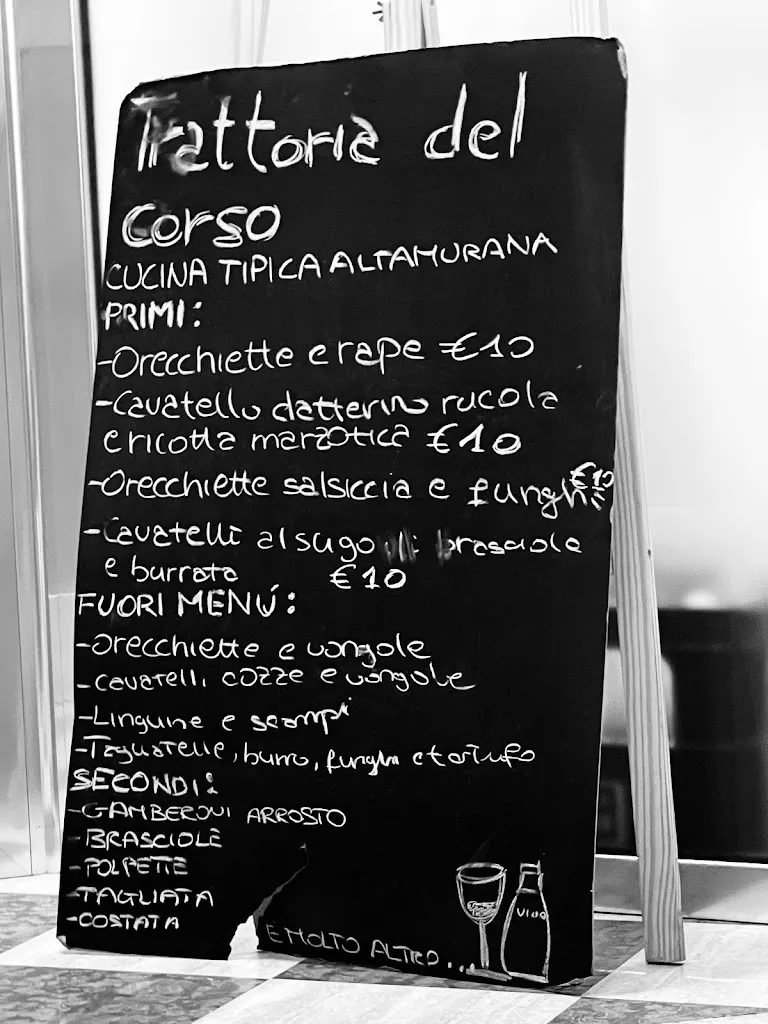 Trattoria del
corso
CUCINA TIPICA ALTAMURANA
PRIMI:
-Orecchiette e rape €10
-Cavatello datterino rucola
e ricotta marzotica €10
-Orecchiette salsiccia e funghi €10
-Cavatelli al sugo di brasciole
e burrata €10
FUORI MENÚ:
-Orecchiette e vongole
-cavatelli cozze e vongole
-Linguine e scampi
-Tagliatelle, burro, funghi e tartufo
SECONDI:
-GAMBERONI ARROSTO
-BRASCIOLE
-POLPETTE
-TAGLIATA
-COSTATA
E MOLTO ALTRO...
VINO